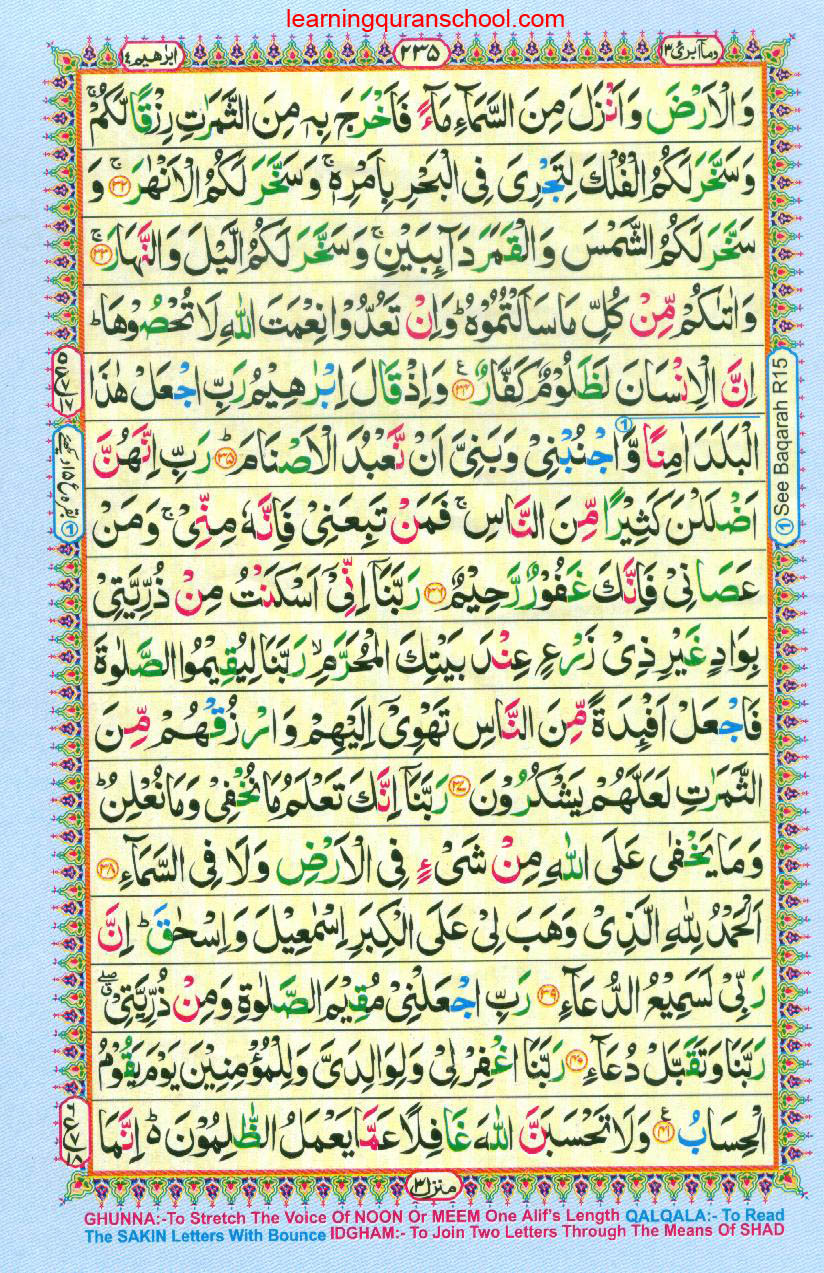 learningquranschool.com
ابرٰهیم ١٤
٢٣۵
ومآ ابرئ ١٣
وَالْاَرْضَ وَاَنْزَلَ مِنَ السَّمَآءِ مَآءً فَاَخْرَجَ بِهٖ مِنَ الثَّمَرٰتِ رِزْقًا لَّكُمْ ۚ
وَسَخَّرَ لَكُمُ الْفُلْكَ لِتَجْرِیَ فِی الْبَحْرِ بِاَمْرِهٖ ۚ وَسَخَّرَ لَكُمُ الْاَنْهٰرَ ۚ ﴿٣٢﴾ وَ
سَخَّرَ لَكُمُ الشَّمْسَ وَالْقَمَرَ دَآئِبَیْنِ ۚ وَسَخَّرَ لَكُمُ الَّیْلَ وَالنَّهَارَ ۚ ﴿٣٣﴾
وَاٰتٰىكُمْ مِّنْ كُلِّ مَا سَاَلْتُمُوْهُ ؕ وَاِنْ تَعُدُّوْا نِعْمَتَ اللّٰهِ لَا تُحْصُوْهَا ؕ
اِنَّ الْاِنْسَانَ لَظَلُوْمٌ كَفَّارٌ ﴿٣٤﴾ وَاِذْ قَالَ اِبْرٰهِیْمُ رَبِّ اجْعَلْ هٰذَا
الْبَلَدَ اٰمِنًا وَّاجْنُبْنِیْ وَبَنِیَّ اَنْ نَّعْبُدَ الْاَصْنَامَ ؕ ﴿٣۵﴾ رَبِّ اِنَّهُنَّ
اَضْلَلْنَ كَثِیْرًا مِّنَ النَّاسِ ۚ فَمَنْ تَبِعَنِیْ فَاِنَّهٗ مِنِّیْ ۚ وَمَنْ
عَصَانِیْ فَاِنَّكَ غَفُوْرٌ رَّحِیْمٌ ﴿٣٦﴾ رَبَّنَاۤ اِنِّیْۤ اَسْكَنْتُ مِنْ ذُرِّیَّتِیْ
بِوَادٍ غَیْرِ ذِیْ زَرْعٍ عِنْدَ بَیْتِكَ الْمُحَرَّمِ ۙ رَبَّنَا لِیُقِیْمُوا الصَّلٰوةَ
فَاجْعَلْ اَفْئِدَةً مِّنَ النَّاسِ تَهْوِیْۤ اِلَیْهِمْ وَارْزُقْهُمْ مِّنَ
الثَّمَرٰتِ لَعَلَّهُمْ یَشْكُرُوْنَ ﴿٣٧﴾ رَبَّنَاۤ اِنَّكَ تَعْلَمُ مَا نُخْفِیْ وَمَا نُعْلِنُ ؕ
وَمَا یَخْفٰی عَلَی اللّٰهِ مِنْ شَیْءٍ فِی الْاَرْضِ وَلَا فِی السَّمَآءِ ﴿٣٨﴾
اَلْحَمْدُ لِلّٰهِ الَّذِیْ وَهَبَ لِیْ عَلَی الْكِبَرِ اِسْمٰعِیْلَ وَاِسْحٰقَ ؕ اِنَّ
رَبِّیْ لَسَمِیْعُ الدُّعَآءِ ﴿٣٩﴾ رَبِّ اجْعَلْنِیْ مُقِیْمَ الصَّلٰوةِ وَمِنْ ذُرِّیَّتِیْ ۖ
رَبَّنَا وَتَقَبَّلْ دُعَآءِ ﴿٤٠﴾ رَبَّنَا اغْفِرْ لِیْ وَلِوَالِدَیَّ وَلِلْمُؤْمِنِیْنَ یَوْمَ یَقُوْمُ
الْحِسَابُ ﴿٤١﴾ وَلَا تَحْسَبَنَّ اللّٰهَ غَافِلًا عَمَّا یَعْمَلُ الظّٰلِمُوْنَ ؕ اِنَّمَا
① See Baqarah R15
منزل ٣
GHUNNA:-To Stretch The Voice Of NOON Or MEEM One Alif's Length QALQALA:- To Read
The SAKIN Letters With Bounce IDGHAM:- To Join Two Letters Through The Means Of SHAD